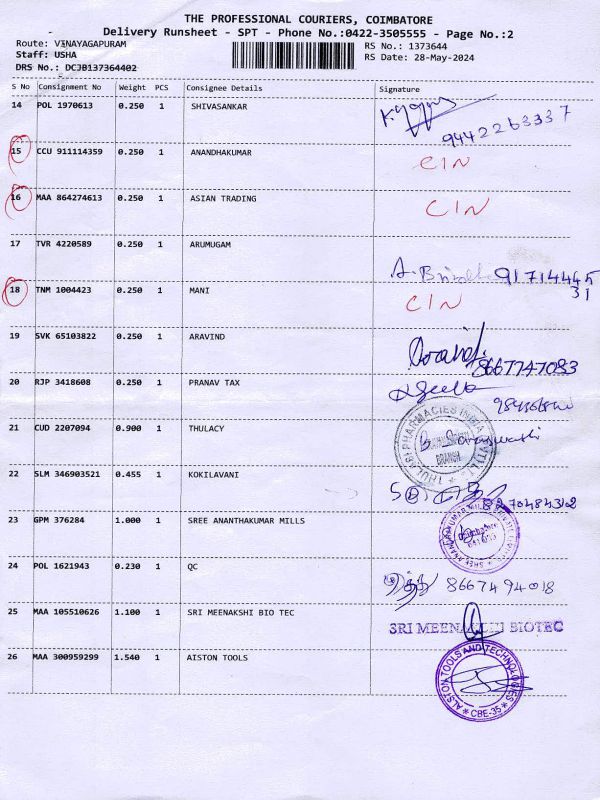 THE PROFESSIONAL COURIERS, COIMBATORE
Delivery Runsheet - SPT - Phone No.:0422-3505555 - Page No.:2
Route: VINAYAGAPURAM
Staff: USHA
DRS No.: DCJB137364402
RS No.: 1373644
RS Date: 28-May-2024
S No Consignment No Weight PCS Consignee Details Signature
14 POL 1970613 0.250 1 SHIVASANKAR
9442263337
15 CCU 911114359 0.250 1 ANANDHAKUMAR CIN
16 MAA 864274613 0.250 1 ASIAN TRADING CIN
17 TVR 4220589 0.250 1 ARUMUGAM
91714445
31
18 TNM 1004423 0.250 1 MANI CIN
19 SVK 65103822 0.250 1 ARAVIND Aravind.
8667747093
20 RJP 3418608 0.250 1 PRANAV TAX
21 CUD 2207094 0.900 1 THULACY
PHARMACIES INDIA
BRANCH
22 SLM 346903521 0.455 1 KOKILAVANI
8270484312
23 GPM 376284 1.000 1 SREE ANANTHAKUMAR MILLS
24 POL 1621943 0.230 1 QC 8667494018
25 MAA 105510626 1.100 1 SRI MEENAKSHI BIO TEC
SRI MEENAKSHI BIOTEC
26 MAA 300959299 1.540 1 AISTON TOOLS
ALSTON TOOLS AND TECHNOLOGIES
* CBE-35 *